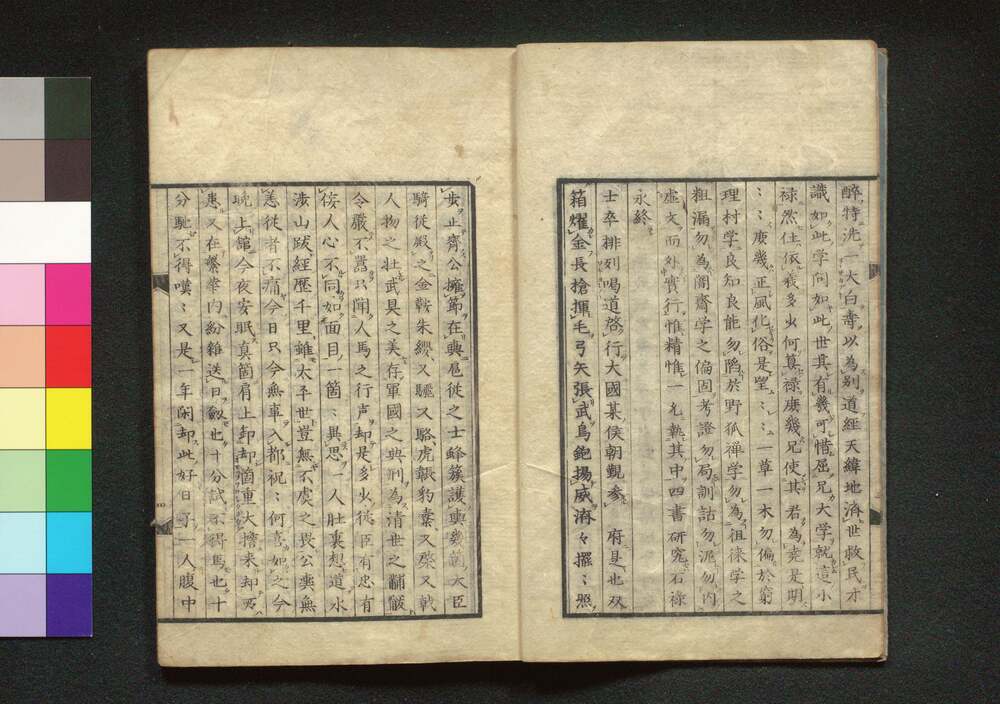 醉特洗一大白壽以為別道經天緯地濟世救民才
識如此学問如此世具有幾可惜屈兄大学就這小
禄然仕依義多少何算禄庶幾兄使其君為堯是明
〻〻庶幾正風化俗是望〻〻一草一木勿偏於窮
理村学良知良能勿陷於野狐禅学勿為徂徠学之
粗漏勿為闇齋学之偏固考證勿局訓詁勿泥勿内
虚文而外實行惟精惟一允執其中四書研究石禄
永終
士卒排列喝道啓行大國某侯朝覲参 府是也双
箱燿金長槍揮毛弓矢張武鳥銃揚威濟々擺〻照
步止齊公擁節在輿扈從之士蜂簇護輿 大臣
騎從殿之金鞍朱纓又驪又駱虎韔豹櫜又棨又戟
人物之壯武具之美存軍國之典刑為清世之黼黻
令嚴不囂只聞人馬之行声却是多少從臣有忠有
侫人心不同如面目一箇〻異思一人肚裏想道水
涉山跋経歷千里雖太平世豈無不虞之畏公無
恙從者不痛今日只今無車入都祝〻何喜如之今
晩上舘今夜安眠真箇肩上卸却箇重大擔来却又
患又在繁華内紛雜送日 也十分試不得馬也十
分馳不得嘆〻又是一年閑却此好日子一人腹中